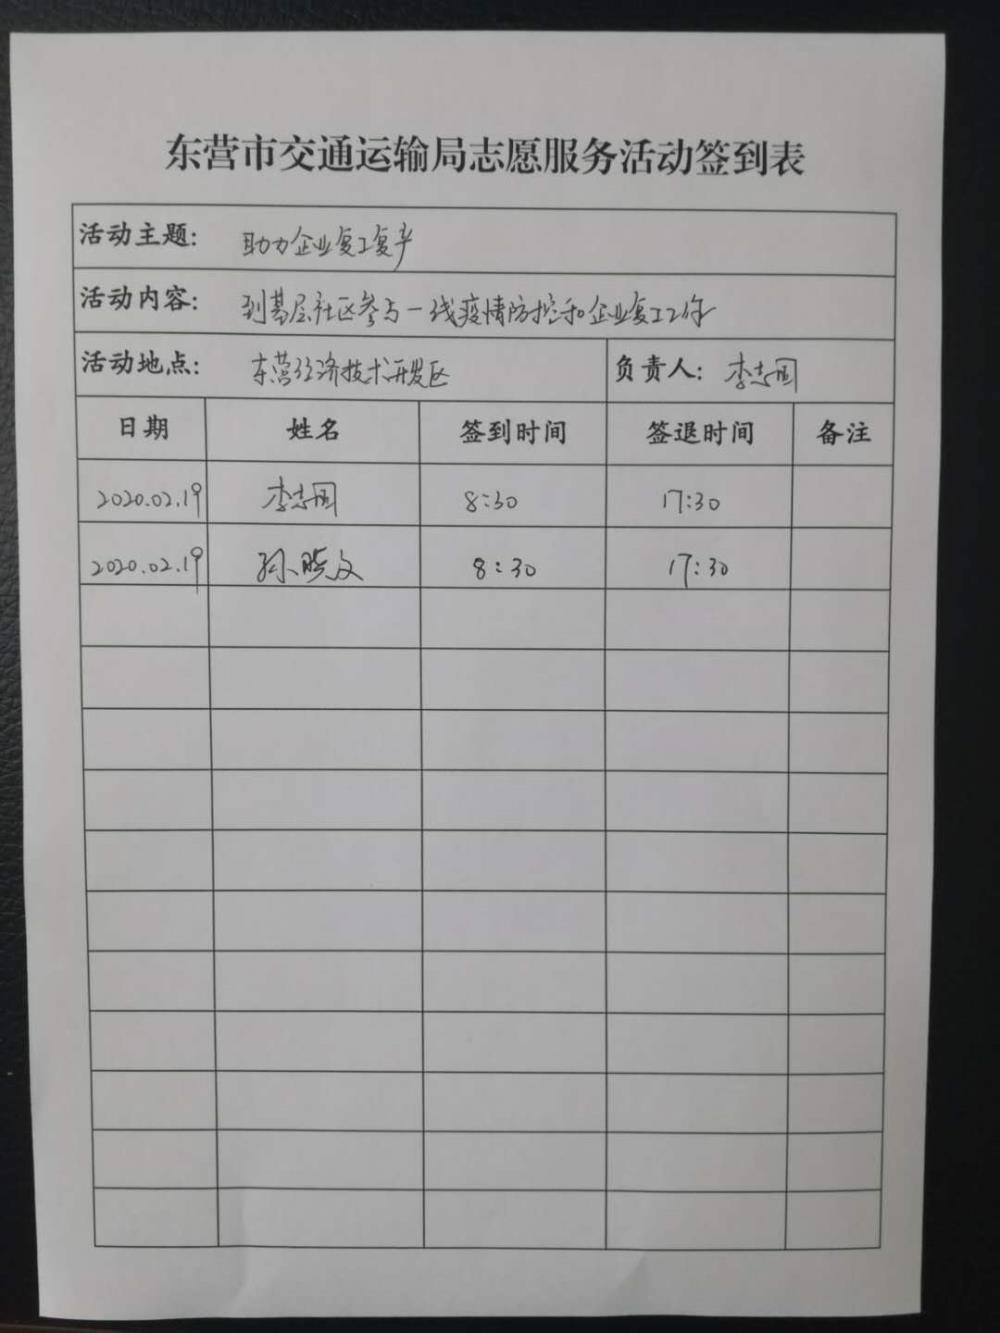 东营市交通运输局志愿服务活动签到表
活动主题: 助力企业复工复产
活动内容: 到基层社区参与一线疫情防控和企业复工工作
活动地点: 东营经济技术开发区 负责人: 李志国
日期 姓名 签到时间 签退时间 备注
2020.02.19 李志国 8:30 17:30
2020.02.19 孙晓文 8:30 17:30